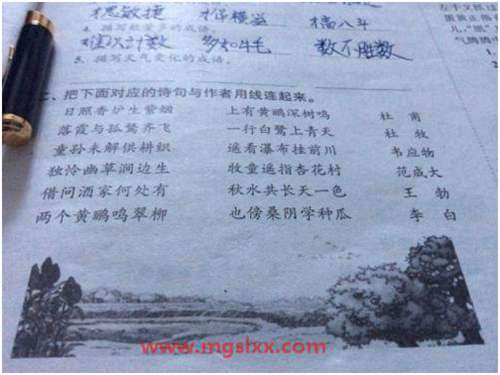 思敏捷 才华横溢 才高八斗
4. 描写数量多的成语。
难以计数 多如牛毛 数不胜数
5. 描写天气变化的成语。
二、把下面对应的诗句与作者用线连起来。
日照香炉生紫烟 上有黄鹂深树鸣 杜甫
落霞与孤鹜齐飞 一行白鹭上青天 杜牧
童孙未解供耕织 遥看瀑布挂前川 韦应物
独怜幽草涧边生 牧童遥指杏花村 范成大
借问酒家何处有 秋水共长天一色 王勃
两个黄鹂鸣翠柳 也傍桑阴学种瓜 李白
www.mgslxx.com